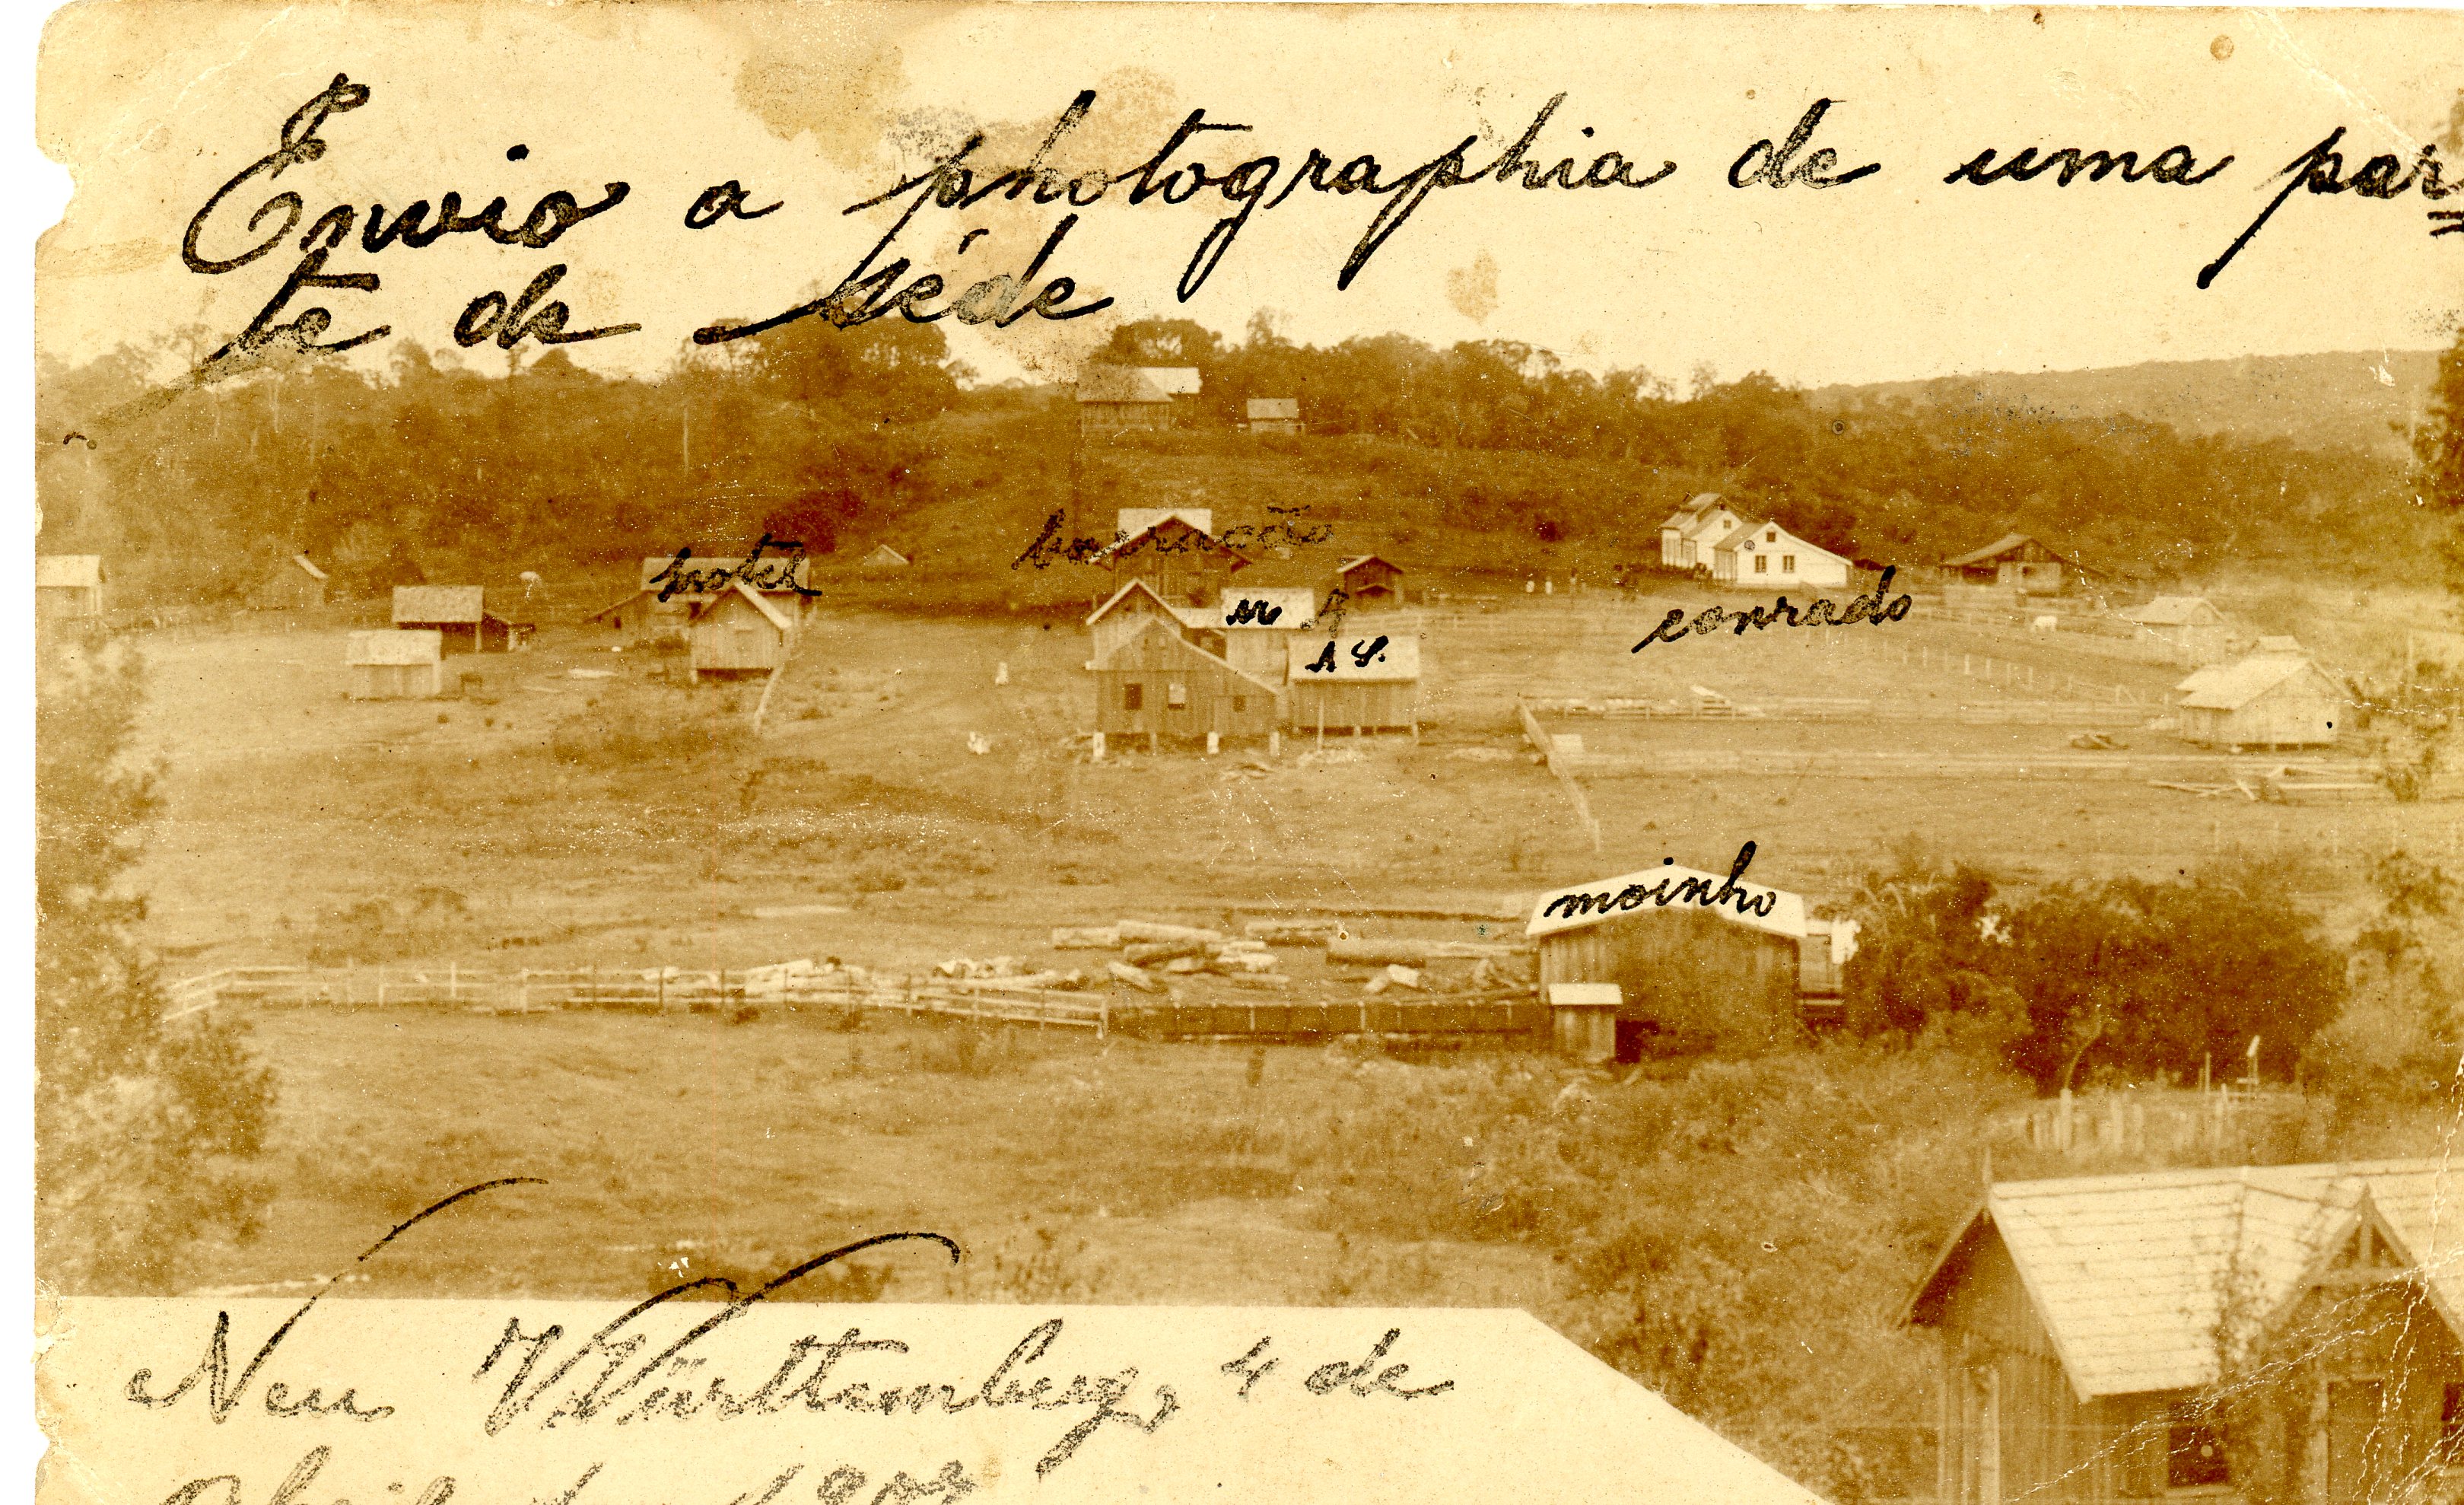 Envio a photographia de uma par=
te de séde
barracão
hotel
conrado
moinho
Neu Württemberg, 4 de
Abril de 190